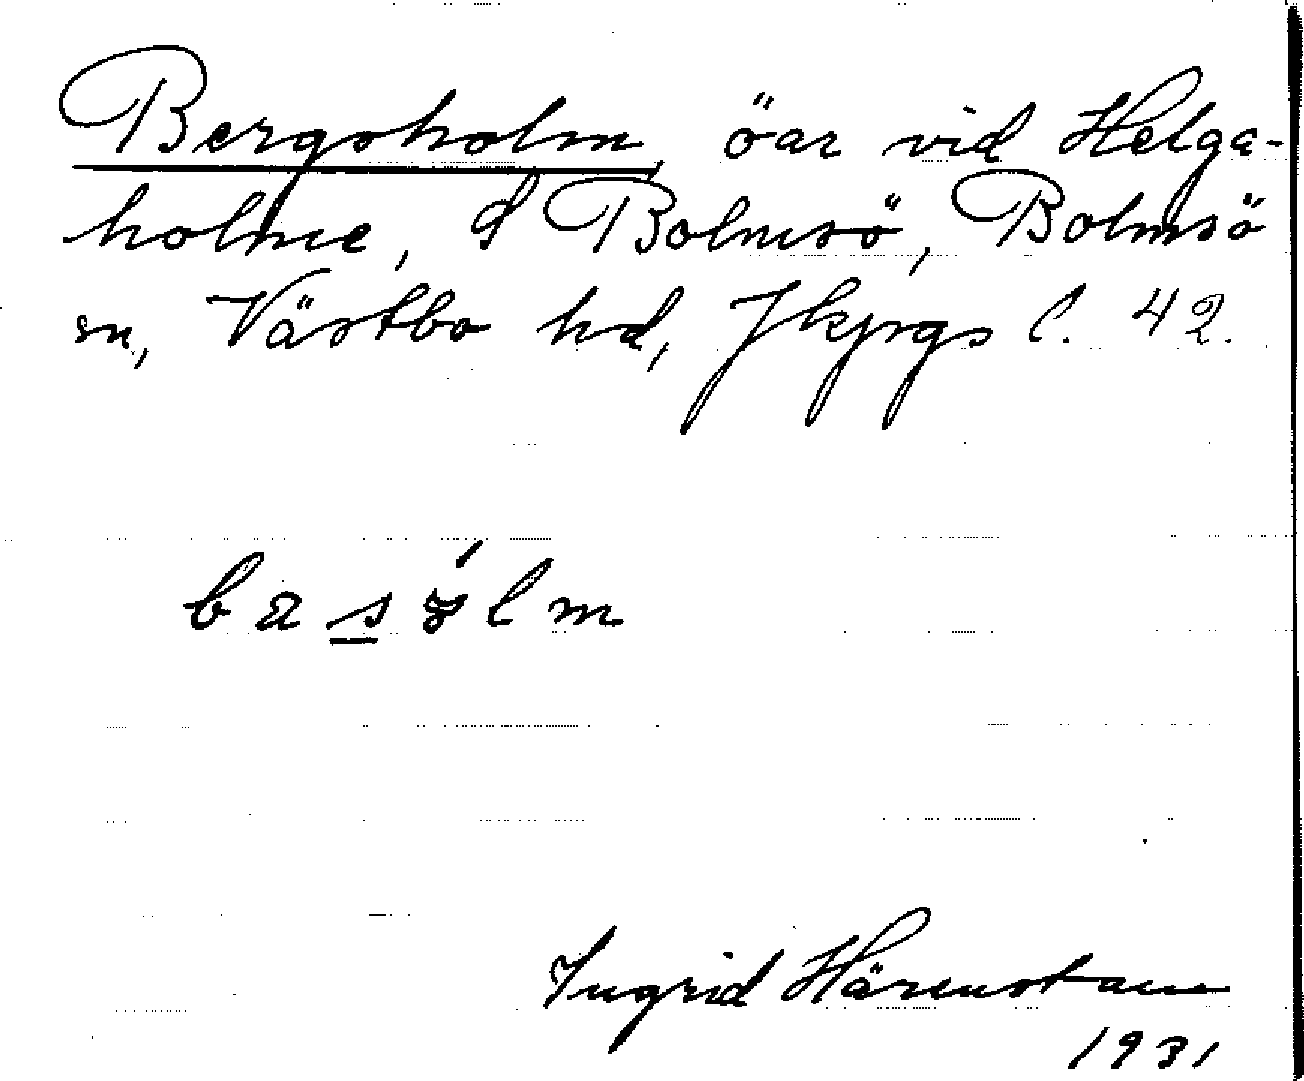 Bergsholm, öar vid Helga-
holme, S Bolmsö, Bolmsö
sn, Västbo hd, Jkpgs l. 42.
Ingrid Härenstam
1931